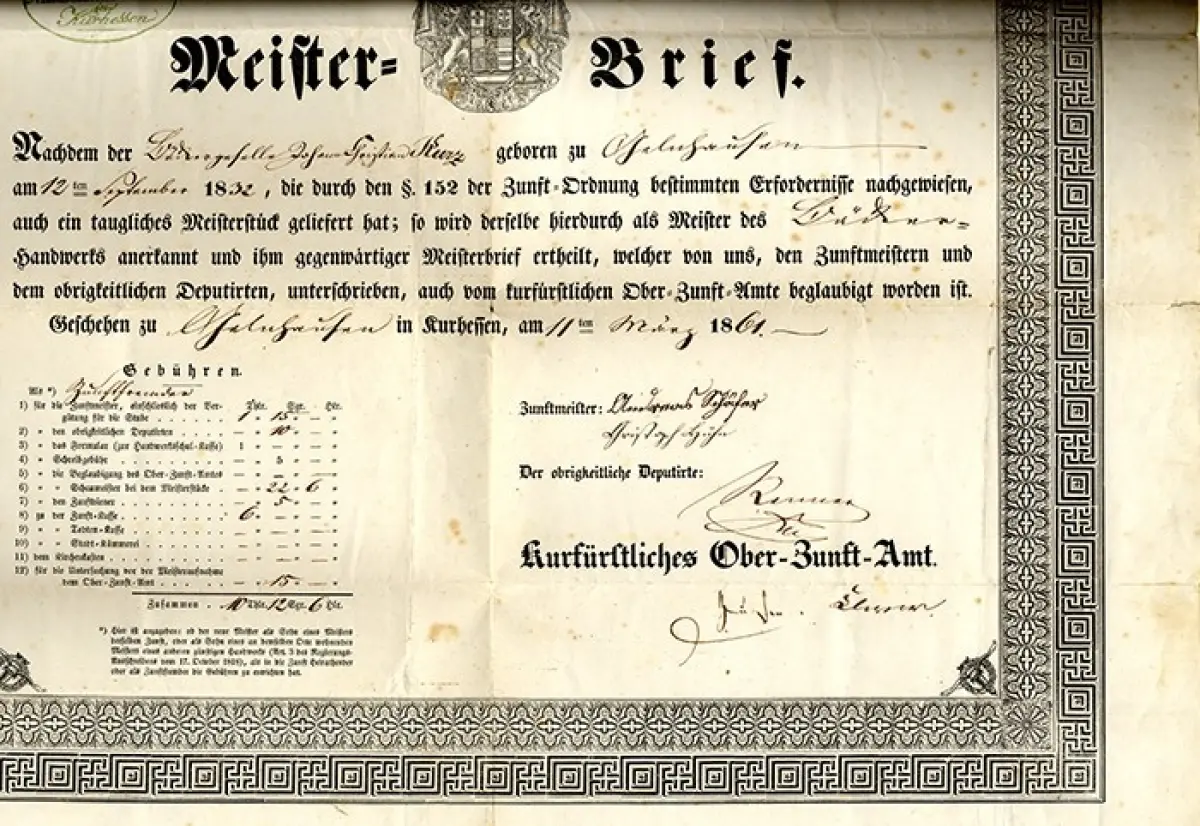 Kurhessen
Meister- Brief.
Nachdem der Bäckergeselle Johann Christian Kurz geboren zu Gelnhausen
am 12ten September 1832, die durch den §. 152 der Zunft-Ordnung bestimmten Erfordernisse nachgewiesen,
auch ein taugliches Meisterstück geliefert hat; so wird derselbe hierdurch als Meister des Bäcker-
Handwerks anerkannt und ihm gegenwärtiger Meisterbrief ertheilt, welcher von uns, den Zunftmeistern und
dem obrigkeitlichen Deputirten, unterschrieben, auch vom kurfürstlichen Ober-Zunft-Amte beglaubigt worden ist.
Geschehen zu Gelnhausen in Kurhessen, am 11ten März 1861.
Gebühren.
Als *) Zunftfremder
1) für die Zunftmeister, einschließlich der Ver- Thlr. Sgr. Hlr.
gütung für die Stube . . . . . . 1 " 15 " — "
2) " den obrigkeitlichen Deputirten . . — " 10 " — "
3) " das Formular (zur Handwerksschul-Kasse) 1 " — " — "
4) " Schreibgebühr . . . . . . — " 5 " — "
5) " die Beglaubigung des Ober-Zunft-Amtes — " — " — "
6) " " Schaumeister bei dem Meisterstücke . — " 22 " 6 "
7) " den Zunftdiener . . . . . . — " 5 " — "
8) zu der Zunft-Kasse . . . . . . 6 " — " — "
9) " " Todten-Kasse . . . . . . — " — " — "
10) " " Stadt-Kämmerei . . . . . . — " — " — "
11) dem Kirchenkasten . . . . . . — " — " — "
12) für die Untersuchung vor der Meisteraufnahme
dem Ober-Zunft-Amt . . . . . — " 15 " — "
Zusammen . 10 Thlr. 12 Sgr. 6 Hlr.
*) Hier ist anzugeben: ob der neue Meister als Sohn eines Meisters
derselben Zunft, oder als Sohn eines an demselben Orte wohnenden
Meisters eines anderen zünftigen Handwerks (Art. 3 des Regierungs-
Ausschreibens vom 17. October 1828), als in die Zunft Heirathender
oder als Zunftfremder die Gebühren zu entrichten hat.
Zunftmeister: Andreas Schäfer
Christoph
Der obrigkeitliche Deputirte:
Kurfürstliches Ober-Zunft-Amt.